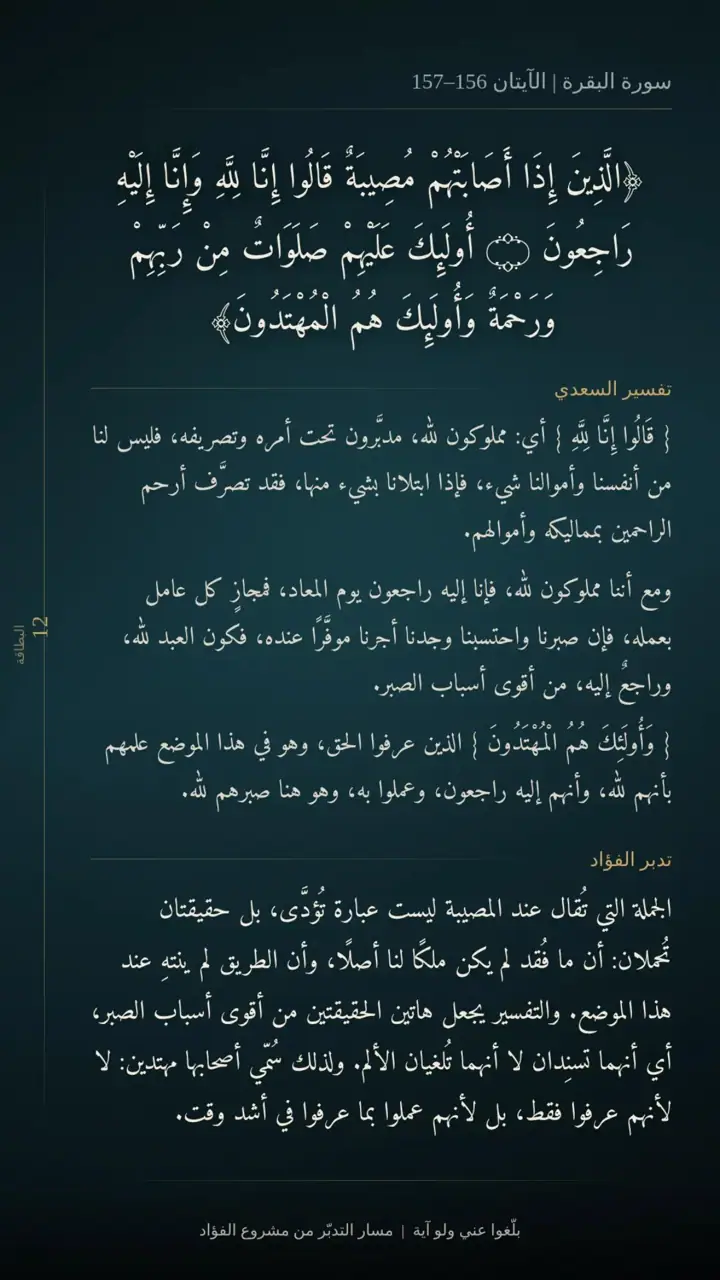 سورة البقرة | الآيتان 156–157
﴿الَّذِينَ إِذَا أَصَابَتْهُمْ مُصِيبَةٌ قَالُوا إِنَّا لِلَّهِ وَإِنَّا إِلَيْهِ
رَاجِعُونَ ۝ أُولَئِكَ عَلَيْهِمْ صَلَوَاتٌ مِنْ رَبِّهِمْ
وَرَحْمَةٌ وَأُولَئِكَ هُمُ الْمُهْتَدُونَ﴾
تفسير السعدي
{ قَالُوا إِنَّا لِلَّهِ } أي: مملوكون لله، مدبَّرون تحت أمره وتصريفه، فليس لنا
من أنفسنا وأموالنا شيء، فإذا ابتلانا بشيء منها، فقد تصرَّف أرحم
الراحمين بمماليكه وأموالهم.
ومع أننا مملوكون لله، فإنا إليه راجعون يوم المعاد، فمجازٍ كل عامل
بعمله، فإن صبرنا واحتسبنا وجدنا أجرنا موفَّرًا عنده، فكون العبد لله،
وراجعٌ إليه، من أقوى أسباب الصبر.
{ وَأُولَئِكَ هُمُ الْمُهْتَدُونَ } الذين عرفوا الحق، وهو في هذا الموضع علمهم
بأنهم لله، وأنهم إليه راجعون، وعملوا به، وهو هنا صبرهم لله.
تدبر الفؤاد
الجملة التي تُقال عند المصيبة ليست عبارة تُؤدَّى، بل حقيقتان
تُحملان: أن ما فُقد لم يكن ملكًا لنا أصلًا، وأن الطريق لم ينتهِ عند
هذا الموضع. والتفسير يجعل هاتين الحقيقتين من أقوى أسباب الصبر،
أي أنهما تسنِدان لا أنهما تُلغيان الألم. ولذلك سُمّي أصحابها مهتدين: لا
لأنهم عرفوا فقط، بل لأنهم عملوا بما عرفوا في أشد وقت.
البطاقة
12
بلّغوا عني ولو آية | مسار التدبّر من مشروع الفؤاد